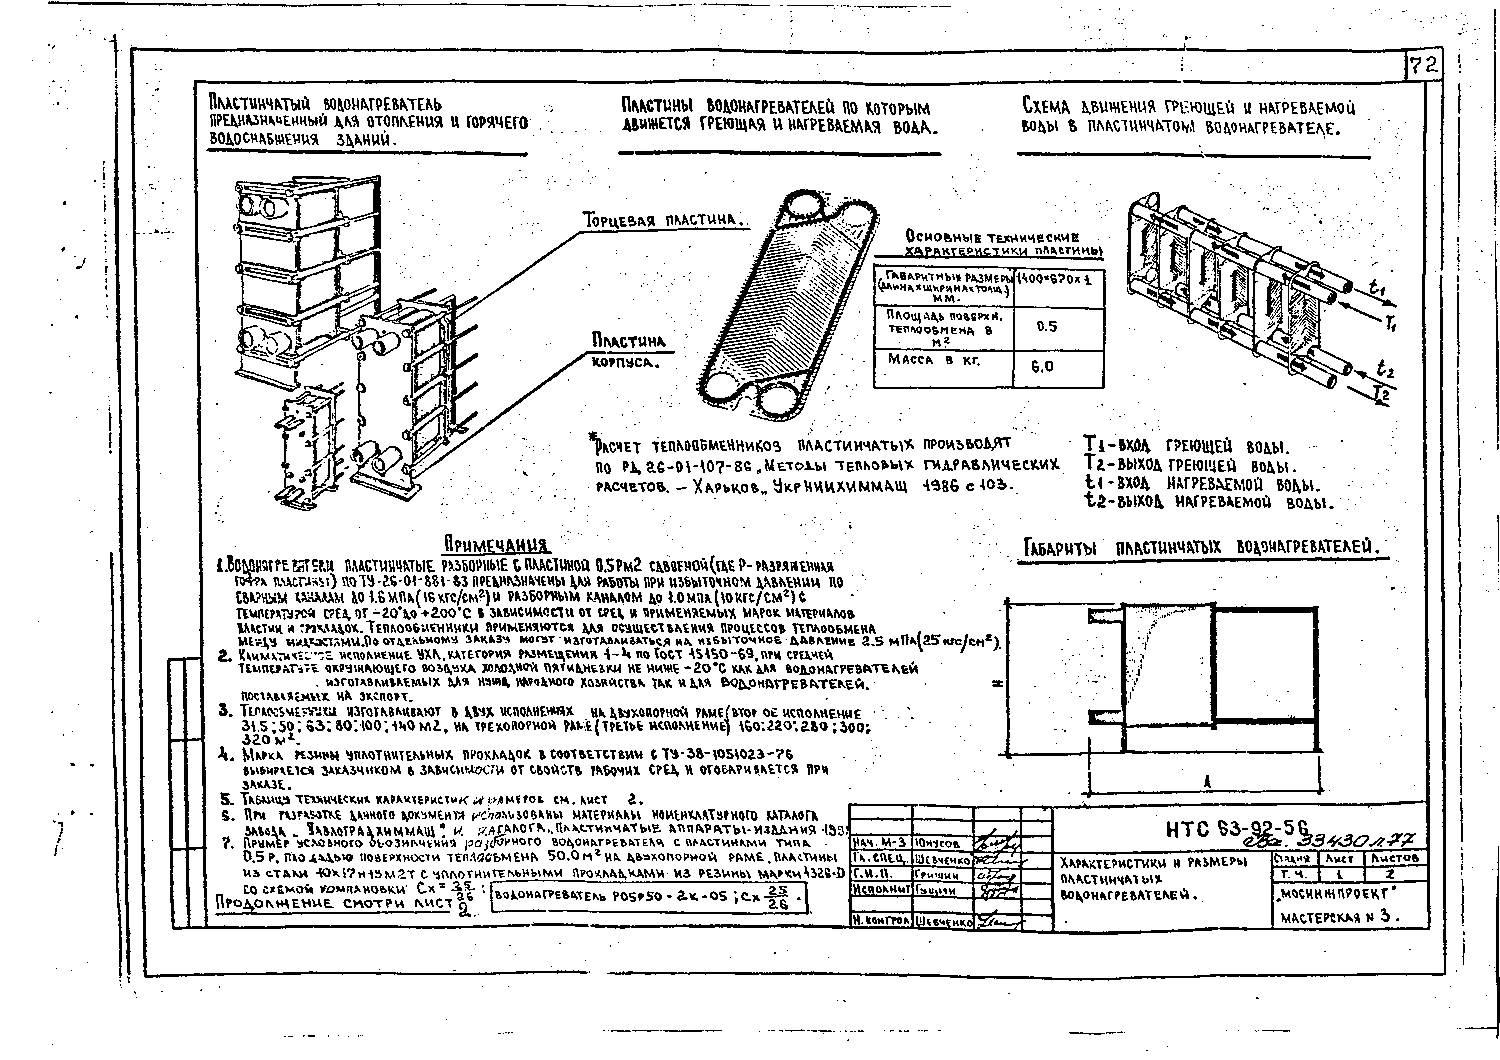 72
Пластинчатый водонагреватель
предназначенный для отопления и горячего
водоснабжения зданий.
Пластины водонагревателей по которым
движется греющая и нагреваемая вода.
Схема движения греющей и нагреваемой
воды в пластинчатом водонагревателе.
Торцевая пластина.
Пластина
корпуса.
Основные технические
характеристики пластины
Габаритные размеры 1400×670×1
(длина×ширина×толщ.)
мм.
Площадь поверхн.
теплообмена в 0.5
м2
Масса в кг. 6.0
t1
T1
t2
T2
*Расчет теплообменников пластинчатых производят
по РД 26-01-107-86, Методы тепловых гидравлических
расчетов. – Харьков„ УкрНИИХИММАШ 1986 с 103.
T1-вход греющей воды.
T2-выход греющей воды.
t1-вход нагреваемой воды.
t2-выход нагреваемой воды.
Габариты пластинчатых водонагревателей.
H
A
Примечания
1. Водонагреватели пластинчатые разборные с пластиной 0,5Рм2 сдвоеной (где Р-разряженная
гофра пластины) по ТУ-26-01-881-83 предназначены для работы при избыточном давлении по
сварным каналам до 1.6 МПа (16 кгс/см2) и разборным каналом до 1.0 МПа (10 кгс/см2) с
температурой сред от -20° до +200°С в зависимости от сред и применяемых марок материалов
пластин и прокладок. Теплообменники применяются для осуществления процессов теплообмена
между жидкостями. По отдельному заказу могут изготавливаться на избыточное давление 2.5 мПа (25 кгс/см2).
2. Климатическое исполнение УХЛ, категория размещения 1-4 по ГОСТ 15150-69, при средней
температуре окружающего воздуха холодной пятидневки не ниже -20°С как для водонагревателей
изготавливаемых для нужд народного хозяйства так и для водонагревателей.
поставляемых на экспорт.
3. Теплообменники изготавливают в двух исполнениях на двухопорной раме (второе исполнение
31.5; 50; 63; 80; 100; 140 м2, на трехопорной раме (третье исполнение) 160; 220; 280; 300;
320 м2.
4. Марка резины уплотнительных прокладок в соответствии с ТУ-38-1051023-76
выбирается заказчиком в зависимости от свойств рабочих сред и оговаривается при
заказе.
5. Таблицу технических характеристик и размеров см. лист 2.
6. При разработке данного документа использованы материалы номенклатурного каталога
завода „Павлоградхиммаш" и каталога „Пластинчатые аппараты-издания
7. Пример условного обозначения разборного водонагревателя с пластинами типа
0,5 Р, площадью поверхности теплообмена 50.0 м2 на двухопорной раме, пластины
из стали 10х17н13м2т с уплотнительными прокладками из резины марки 4326-D
со схемой компановки Сх= 25/26 : водонагреватель Р05Р50-2К-05; Сх 25/26.
Продолжение смотри лист 2
НТС 63-92-56
33430 л. 77
Нач. М-3 Юнусов
Гл. спец. Шевченко
Г.И.П. Гришин
Исполнит
Н. контрол Шевченко
Характеристики и размеры
пластинчатых
водонагревателей.
Стадия Лист Листов
Т. Ч. 1 2
„Мосинжпроект"
мастерская N 3.